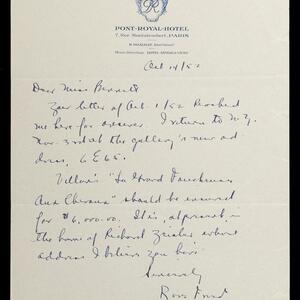 PONT-ROYAL-HOTEL
7, Rue Montalembert, PARIS
Oct 14/52
Dear Miss Bennett
Your letter of Oct 1/52 reached
me here for answer. I return to N.Y.
Nov. 3rd at the gallery's new ad
dress, 6 E 65.
Villon's "Le Grand
Aux Chevaux" should be insured
for $6,000.00. It is, at present, in
the home of Richard Zeisler whose
address I believe you have
Sincerely